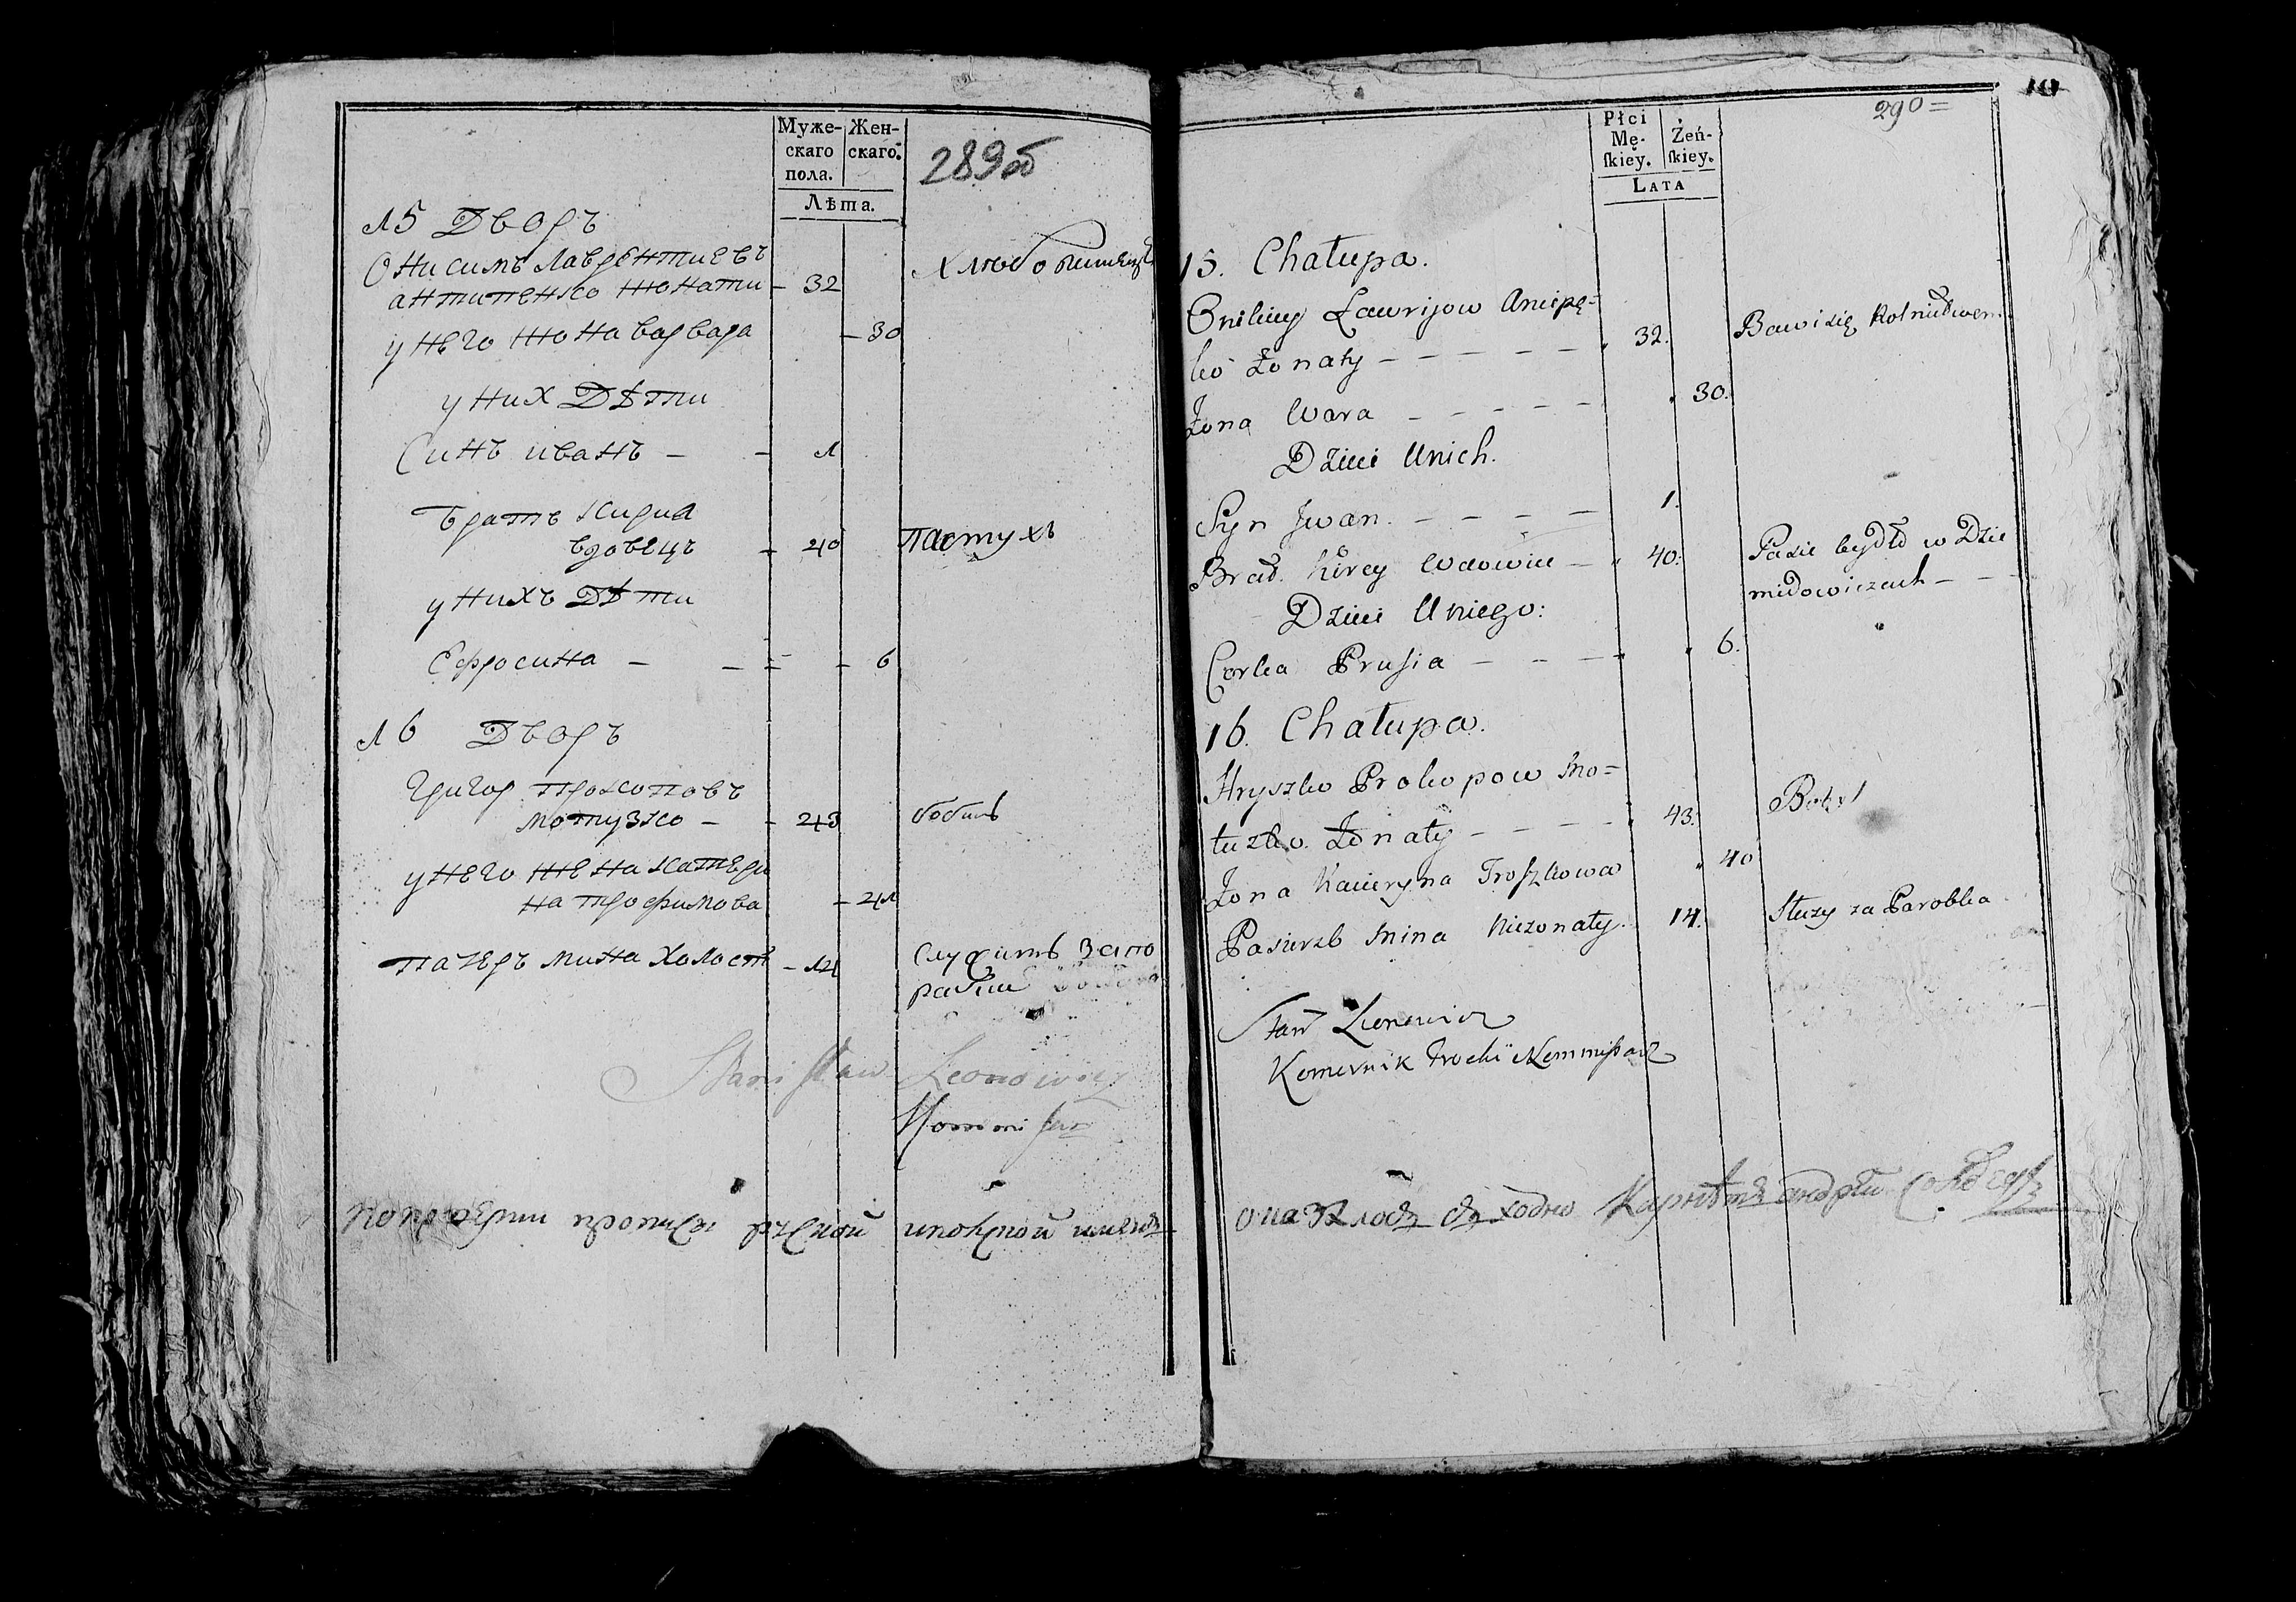 Муже-
скаго
пола.
Жен-
скаго.
Лѣта.
289об
15 Дворъ
Онисимъ Лаврентиевъ
антипенко жонати - 32
Хлѣбопашецъ
у него жона варвара - 30
у них Дѣти
Синъ иванъ - - 1
братъ Кирила
вдовецъ - 40 пастухъ
у нихъ Дѣти
Ефросина - - - - 6
16 Дворъ
Григор прокоповъ
мотузко - - 43 бобиль
у него жена катери
на трофимова - 41
пасербъ мина холостъ - 14
Служитъ запо
рабка
Stanisław Leonowicz
Kommissarz
10
290=
Płci
Mę-
ſkiey.
Żeń-
ſkiey.
Lata
15. Chałupa.
Onikiey Ławrijow Ancipę-
ko Żonaty - - - - - 32. Bawi się Rolnictwem
Żona Wara - - - - - 30.
Dzieci Unich.
Syn Jwan. - - - - 1.
Brat. Kirey Wdowiec - 40. Pasie bydło w Dzie
midowiczach - - -
Dzieci Uniego:
Corka Prusia - - - 6.
16. Chałupa.
Hryszko Prokopow Mo=
tuzko. Żonaty - - - - 43. Bobyl
Żona Kacieryna Troszkowa 40
Pasierzb Mina Nieżonaty. 14. Służy za Parobka
Stan Leonowicz
Komornik Trocki Kommissarz